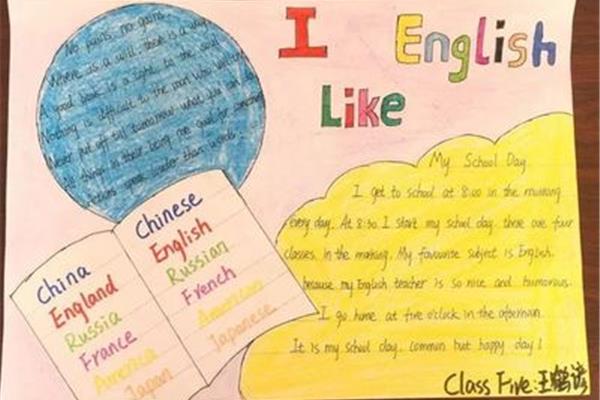 I
English
Like
No pains, no gains.
Where as a will, there is a way.
A good book is a light to the soul.
Nothing is difficult to the man who will try.
Never put off till tomorrow what you can do
things in their being are good for something
Actions speak louder than words.
China
England
Russia
France
America
Japan
Chinese
English
Russian
French
American
Japanese
My School Day
I get to school at 8:00 in the morning
every day. At 8:30 I start my school day. there are four
classes. In the morning. My favourite subject is English.
because my English teacher is so nice and humorous.
I go home at five o'clock in the afternoon
It is my school day. Common but happy day!
Class Five:王鹤